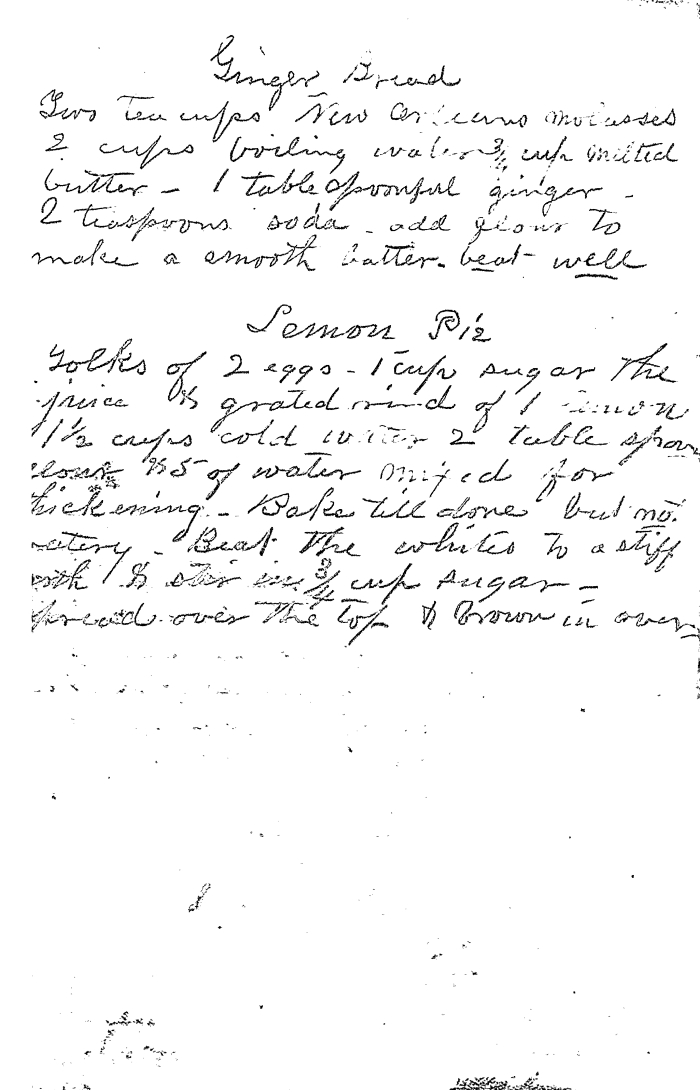 Ginger Bread
Two tea cups New Orleans Molasses
2 cups boiling water 3/4 cup melted
butter - 1 tablespoonful ginger -
2 teaspoons soda - add flour to
make a smooth batter - beat well
Lemon Pie
Yolks of 2 eggs - 1 cup sugar the
juice & grated rind of 1 lemon
1 1/2 cups cold water 2 table spoon
flour & 5 of water mixed for
hickening - Bake till done but not
atery - Beat the whites to a stiff
oth & stir in 3/4 cup sugar -
pread over the top & brown in oven